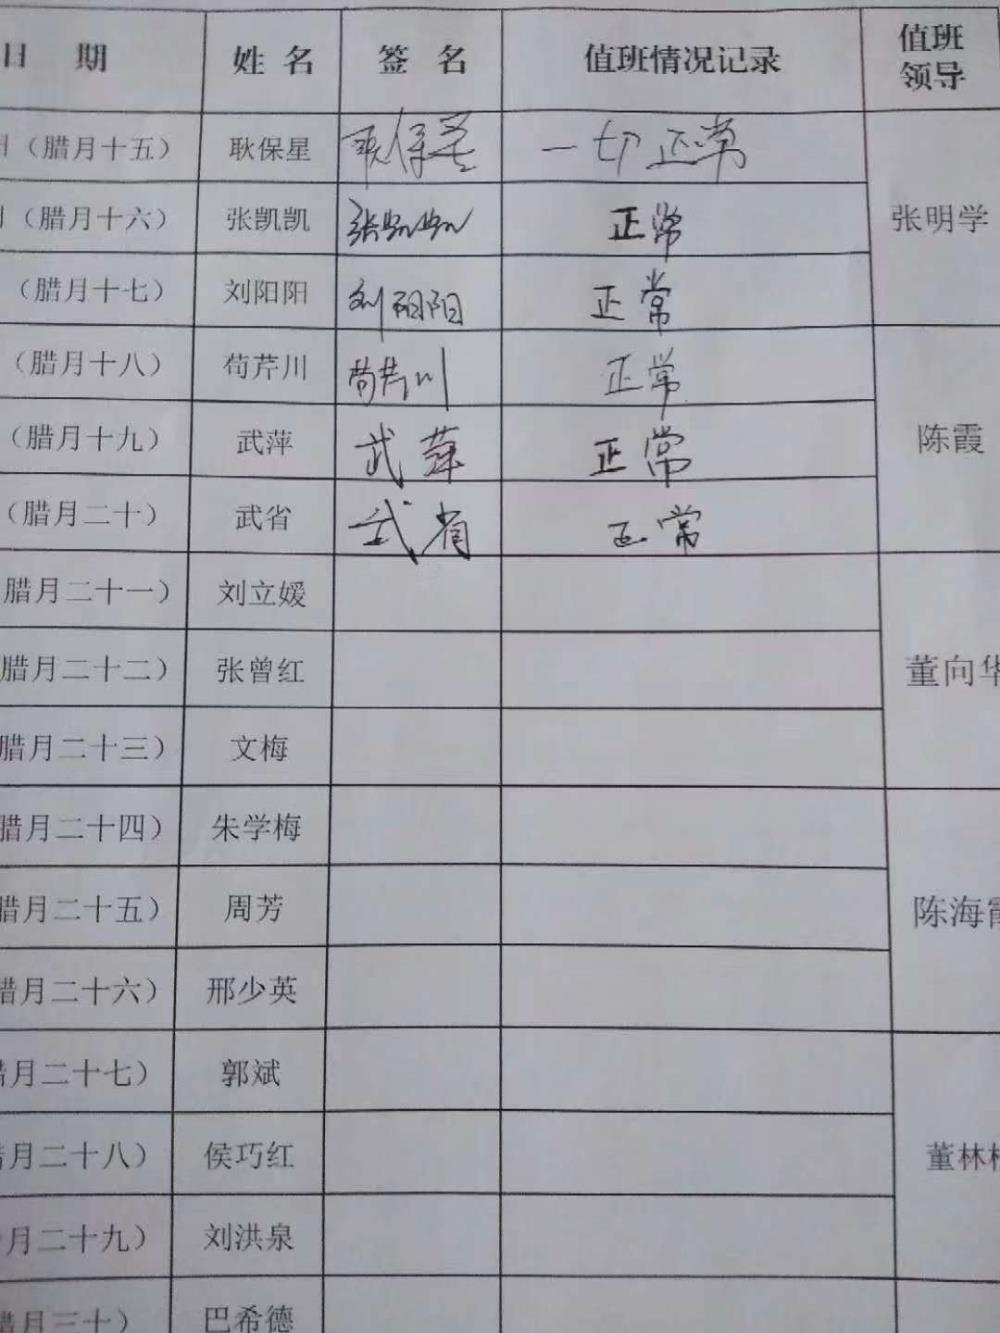 日 期 姓 名 签 名 值班情况记录 值班领导
（腊月十五） 耿保星 耿保星 一切正常
（腊月十六） 张凯凯 张凯凯 正常 张明学
（腊月十七） 刘阳阳 刘阳阳 正常
（腊月十八） 苟芹川 苟芹川 正常
（腊月十九） 武萍 武萍 正常 陈霞
（腊月二十） 武省 武省 正常
腊月二十一） 刘立媛
腊月二十二） 张曾红 董向华
腊月二十三） 文梅
腊月二十四） 朱学梅
腊月二十五） 周芳 陈海霞
腊月二十六） 邢少英
月二十七） 郭斌
月二十八） 侯巧红 董林
月二十九） 刘洪泉
腊月三十） 巴希德